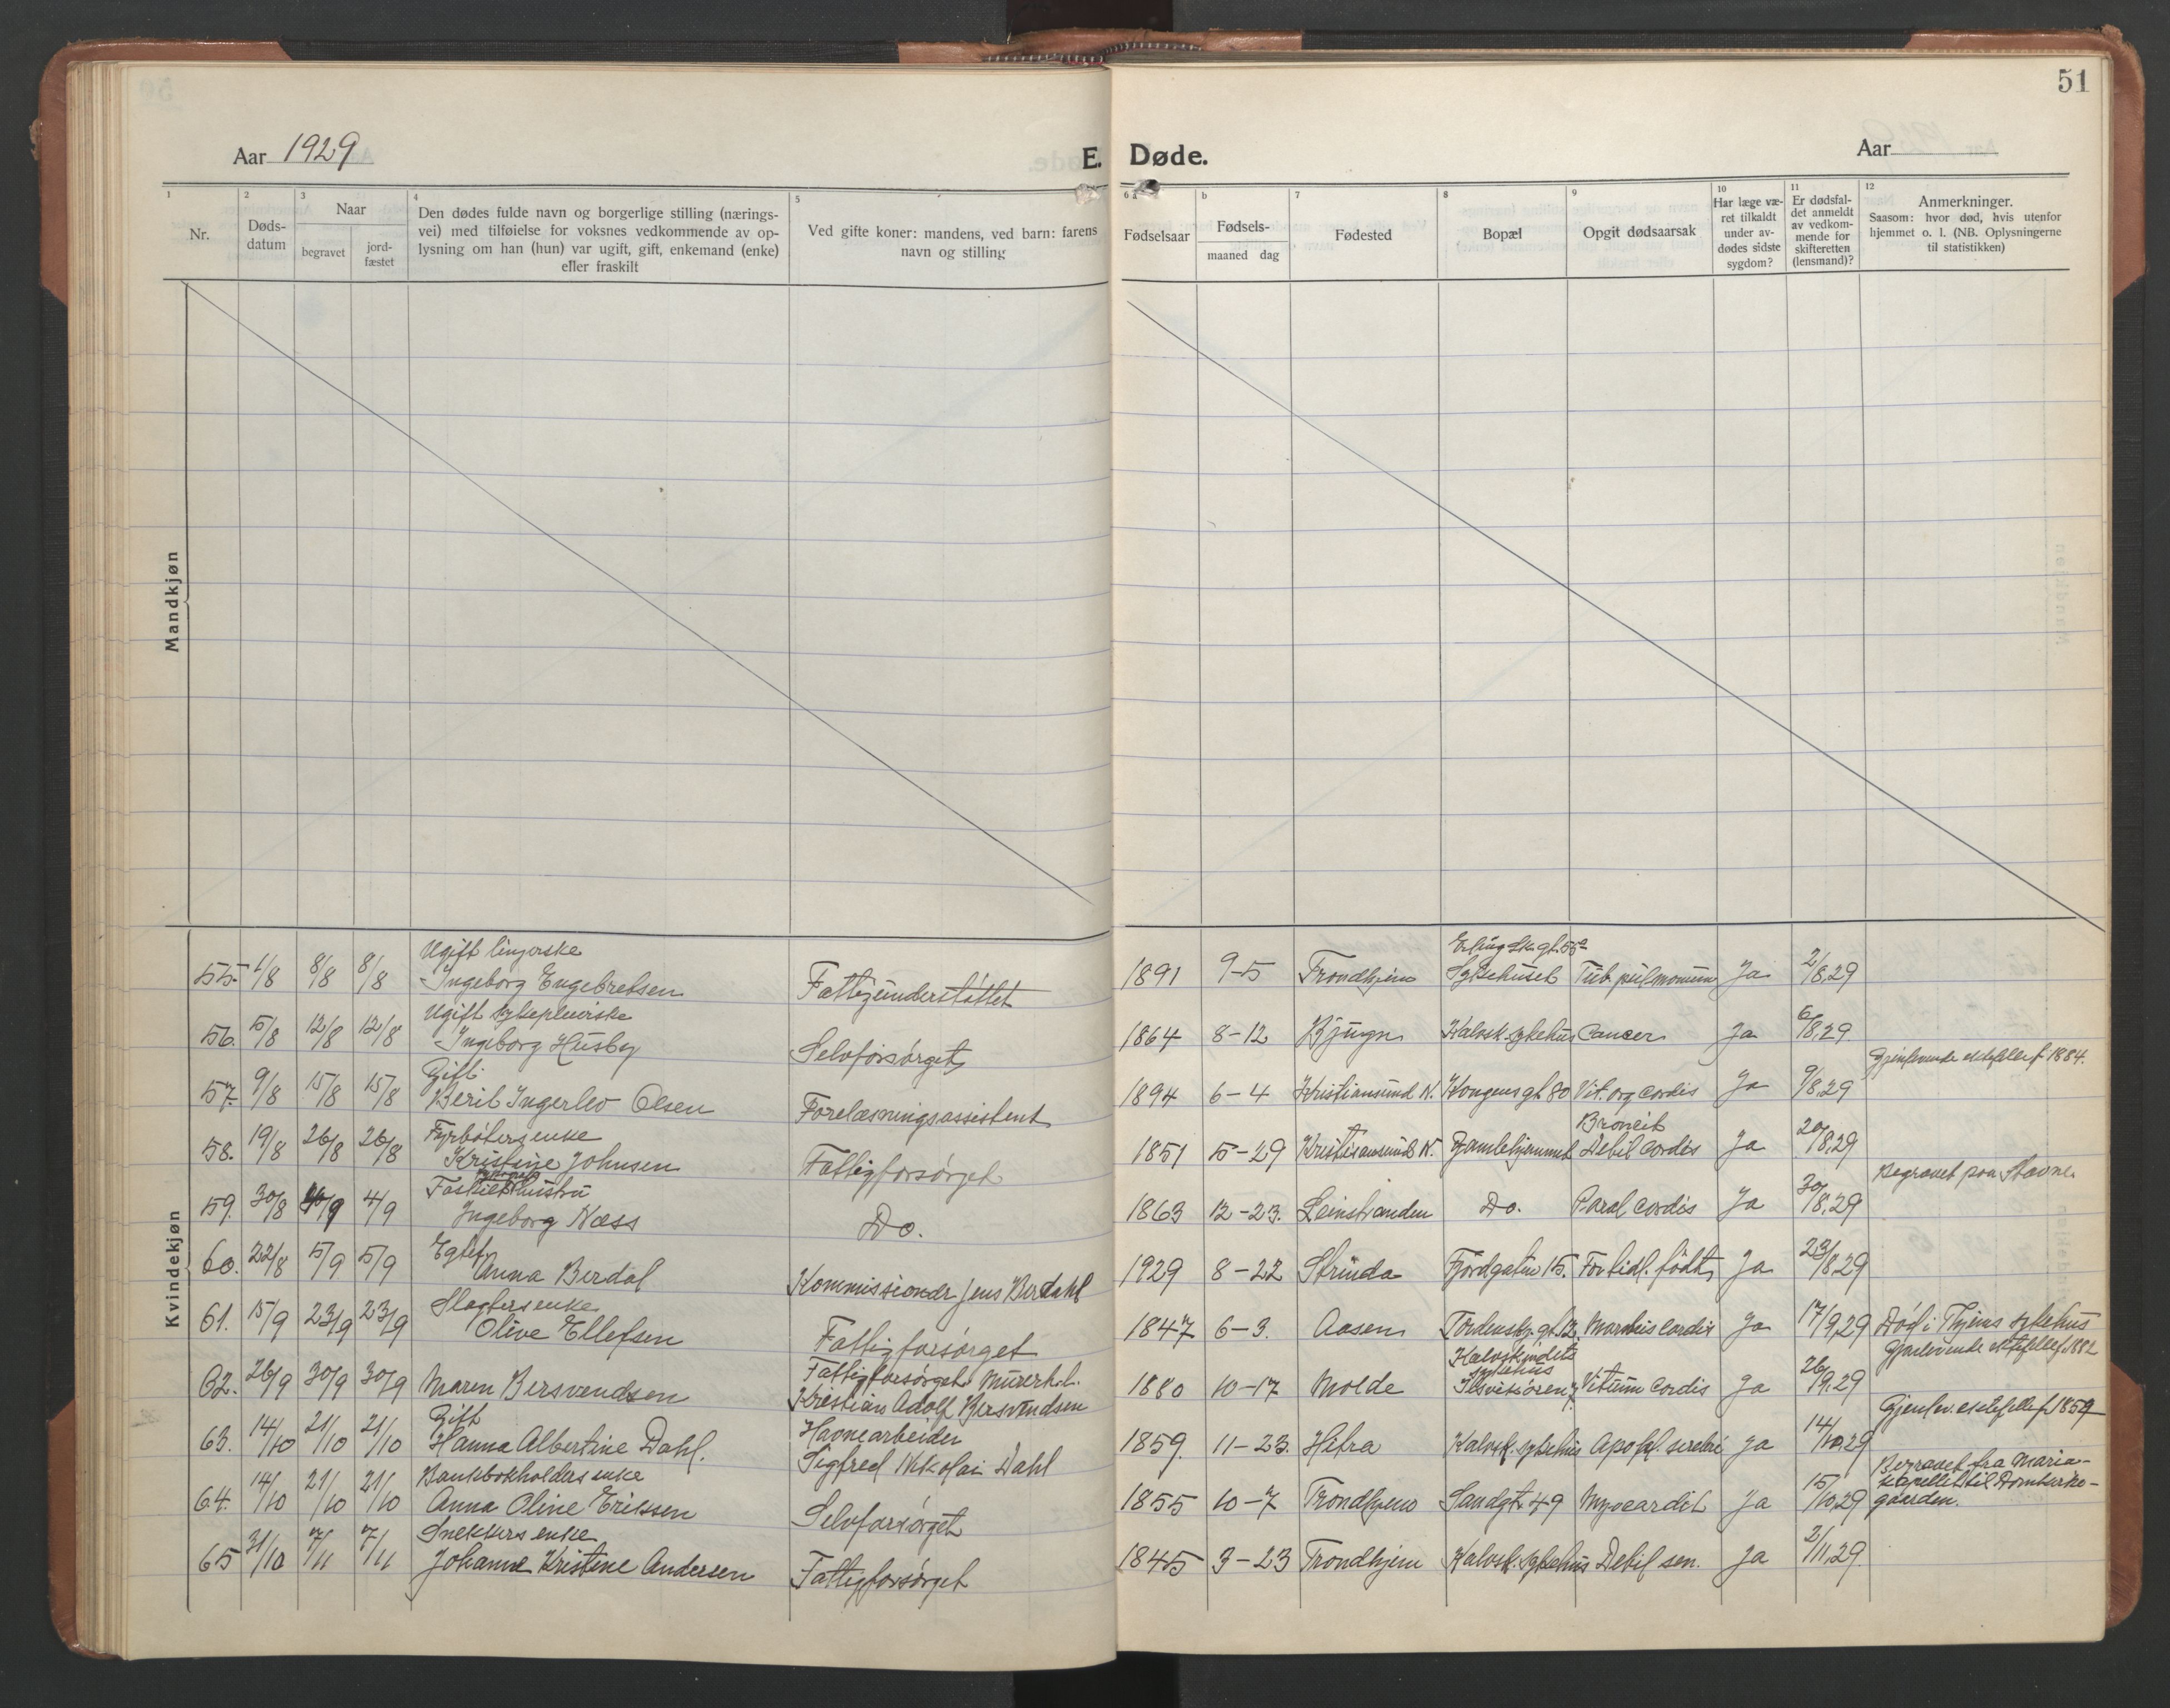 51
Aar 1929
E. Døde.
Aar
1 2 3 4 5 6 a b 7 8 9 10 11 12
Nr.
Døds-
datum
Naar
begravet
jord-
fæstet
Den dødes fulde navn og borgerlige stilling (nærings-
vei) med tilføielse for voksnes vedkommende av op-
lysning om han (hun) var ugift, gift, enkemand (enke)
eller fraskilt
Ved gifte koner: mandens, ved barn: farens
navn og stilling
Fødselsaar
Fødsels-
maaned dag
Fødested
Bopæl
Opgit dødsaarsak
Har læge væ-
ret tilkaldt
under av-
dødes sidste
sygdom?
Er dødsfal-
det anmeldt
av vedkom-
mende for
skifteretten
(lensmand)?
Anmerkninger.
Saasom: hvor død, hvis utenfor
hjemmet o. l. (NB. Oplysningerne
til statistikken)
Mandkjøn
Kvindekjøn
Ugift Erling Sk. gt. 55a
55. 1/8 8/8 8/8 Ingeborg Engebretsen Fattigunderstøttet 1891 9-5 Trondhjem Sykehuset Tub. pulmonum Ja 2/8.29
Ugift sykepleierske
56. 5/8 12/8 12/8 Ingeborg Husby Selvforsørget 1864 8-12 Bjugn Kalvsk. sykehus Cancer Ja 6/8.29.
Gift Gjenlevende ektefelle f. 1884.
57. 9/8 15/8 15/8 Berit Ingerlev Olsen Forelæsningsassistent 1894 6-4 Kristiansund N. Kongensgt 80 Vit. org cordis Ja 9/8.29
Fyrbøters enke
58. 19/8 26/8 26/8 Kristine Johnsen Fattigforsørget 1851 5-29 Kristiansund N. Gamlehjemmet Debil cordis Ja 20/8.29
hustru Begravet paa Stavne
59. 30/8 4/9 4/9 Ingeborg Næss Do. 1863 12-23. Leinstranden Do. Paral cordis Ja 30/8.29
Egtef.
60. 22/8 5/9 5/9 Anna Berdal Kommissionær Jens Berdahl 1929 8-22 Strinda Fjordgaten 15. For tidl. født Ja 23/8.29
Slagters enke
61. 15/9 23/9 23/9 Olive Ellefsen Fattigforsørget 1847 6-3. Aasen Tordenskj. gt. 12. Morbus cordis Ja 17/9.29 Død i Thjems sykehus
Fattigforsørget Murerh.l. Kalvskindets sykehus Gjenlevende ektefelle f. 1882
62. 26/9 30/9 30/9 Maren Bersvendsen Kristian Adolf Bersvendsen 1880 10-17 Molde Ilsvikøren 7. Vitium cordis Ja 26/9.29
Gift Havnearbeider Gjenlev. ektefelle f. 1859
63. 14/10 21/10 21/10 Hanna Albertine Dahl. Sigfred Nikolai Dahl 1859. 11-23. Hitra Kalvsk. sykehus Apopl. cerebri Ja 14/10.29
Bankbokholders enke Begravet fra Maria-
64. 14/10 21/10 21/10 Anna Oline Erikssen Selvforsørget 1855 10-7 Trondhjem Sandgt. 49 Myocardit Ja 15/10.29 kapellet til Domkirke-
gaarden.
Snekkers enke
65 31/10 7/11 7/11 Johanne Kristine Andersen Fattigforsørget 1845 3-23 Trondhjem Kalvsk. sykehus Debil sen. Ja 2/11.29.